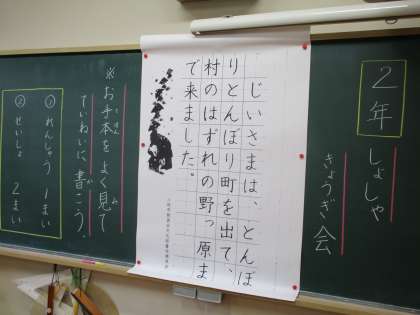 2年
しょしゃ
きょうぎ会
じいさまは、とんぼ
りとんぼり町を出て、
村のはずれの野っ原ま
で来ました。
※お手本をよく見て
ていねいに、書こう。
① れんしゅう 1まい
② せいしょ 2まい